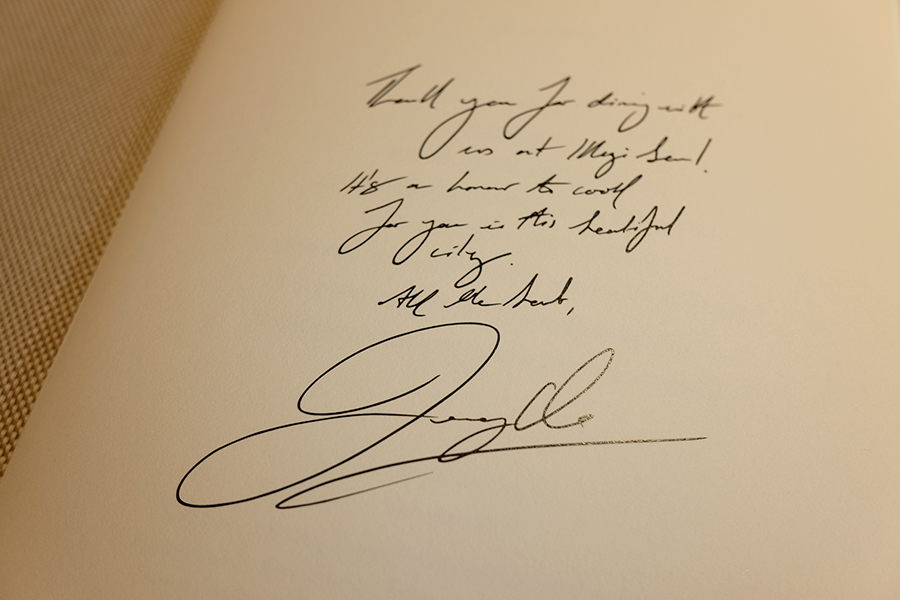 Thank you for dining with
us at Magi Sen!
It's a honour to cook
for you in this beautiful
city.
All the best,